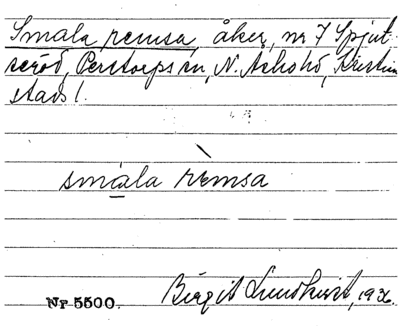 Smala remsa, åker, nr 7 Spjut-
seröd, Perstorps sn, N. Åsbo hd, Kristian
stads l.
smala remsa
Nr 5500. Birgit Lundkvist, 1936.